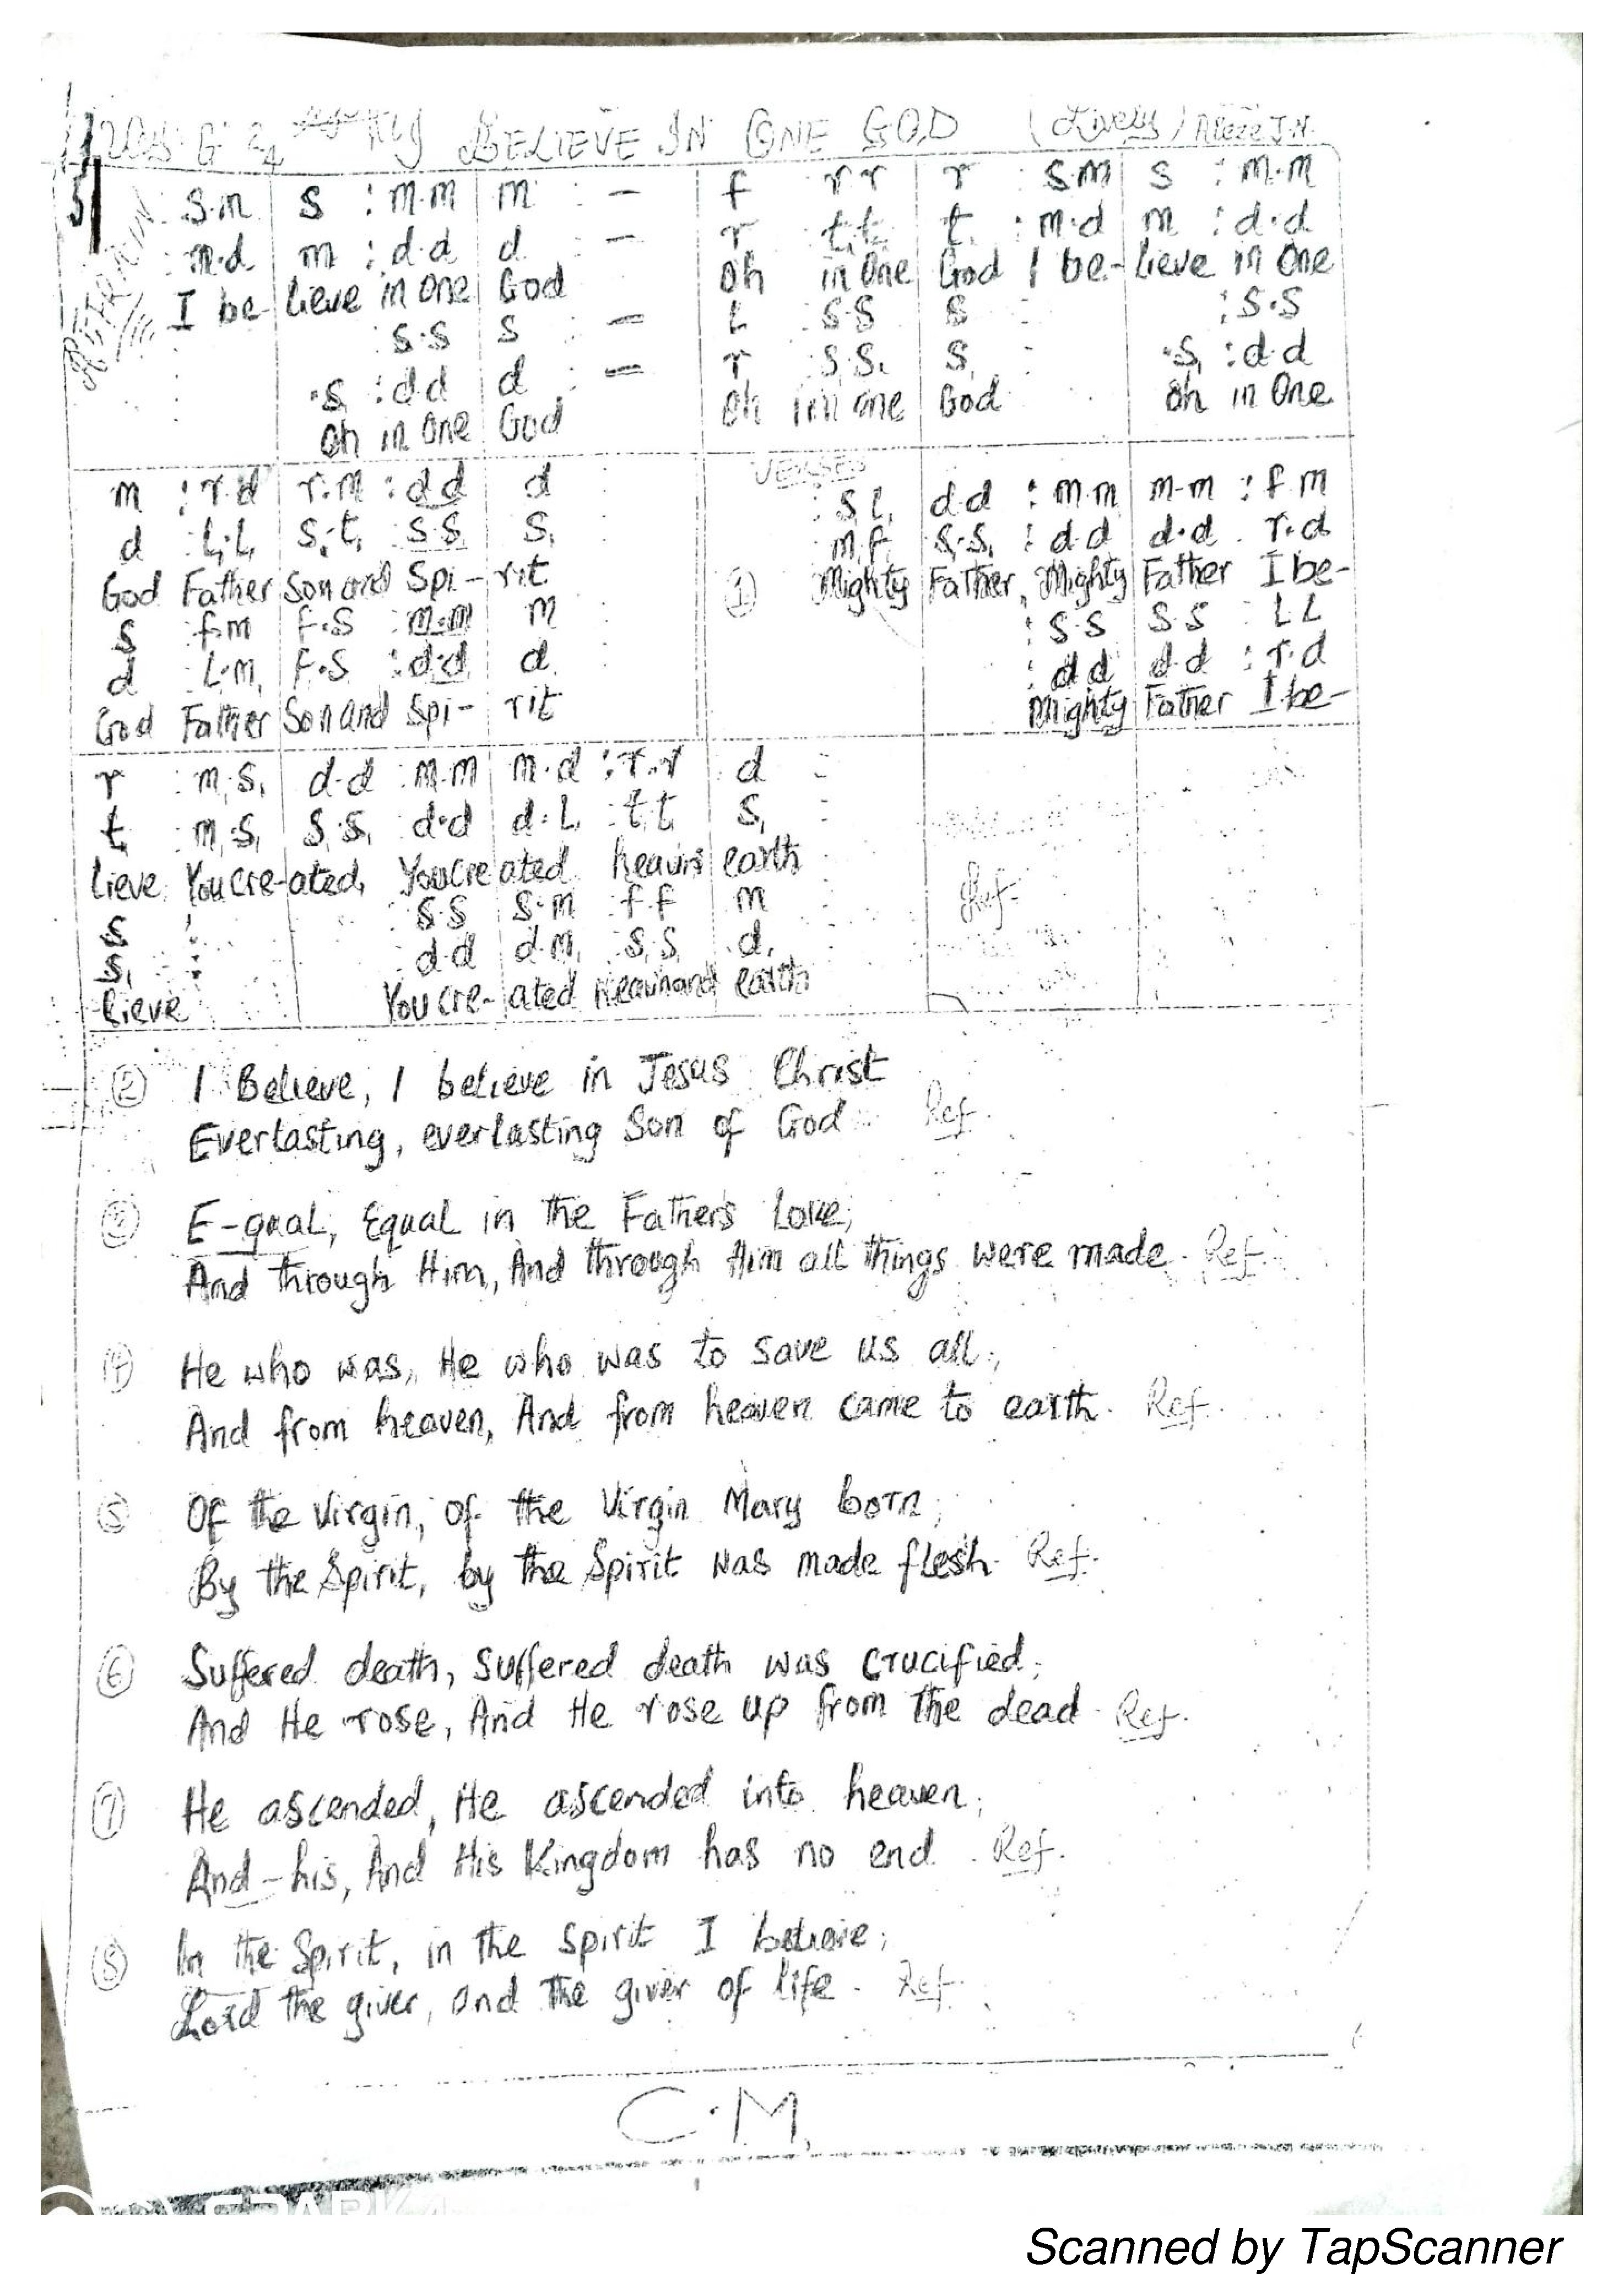 I BELIEVE IN ONE GOD (Lively)
REFRAIN
: s.m | s : m.m | m : – | f : r r | r : s.m | s : m.m
: m.d | m : d.d | d : – | r : t,t, | t, : m.d | m : d.d
I be- lieve in One God Oh in One God I be- lieve in One
: s.s | s : – | L : s.s | s : | : s.s
.s, : d.d | d : – | r : s,.s, | s, : | .s, : d.d
Oh in One God Oh in one God Oh in One
m : r.d | r.m : d d | d :
d : L,L, | s,.t, : s,.s, | s,
God Father Son and Spi- rit
s : f.m | f.s : m.m | m :
d : L.m, | F.s : d.d | d
God Father Son and Spi- rit
VERSES
: s, L, | d.d : m.m | m.m : f.m
m,f, | s,.s, : d.d | d.d : r.d
① Mighty Father, Mighty Father I be-
: s.s | s.s : L L
: d d | d.d : r.d
Mighty Father I be-
r : m,.s, | d.d : m.m | m.d : r.r | d :
t, : m,.s, | s,.s, : d.d | d.L, : t,t, | s, :
lieve You cre-ated, You created heav'n earth
s : | : s.s | s.m : f.f | m
s, : | : d.d | d.m, : s,.s, | d,
Ref-
lieve You cre- ated Heav'n and earth
② I Believe, I believe in Jesus Christ
Everlasting, everlasting Son of God Ref.
③ E-qual, Equal in the Father's Love;
And through Him, And through Him all things were made. Ref.
④ He who was, He who was to save us all;
And from heaven, And from heaven came to earth. Ref.
⑤ Of the Virgin, of the Virgin Mary born;
By the Spirit, by the Spirit was made flesh. Ref.
⑥ Suffered death, Suffered death was crucified;
And He rose, And He rose up from the dead. Ref.
⑦ He ascended, He ascended into heaven;
And – his, And His Kingdom has no end. Ref.
⑧ In the Spirit, in the Spirit I believe;
Lord the giver, and the giver of life. Ref.
C.M.
Scanned by TapScanner